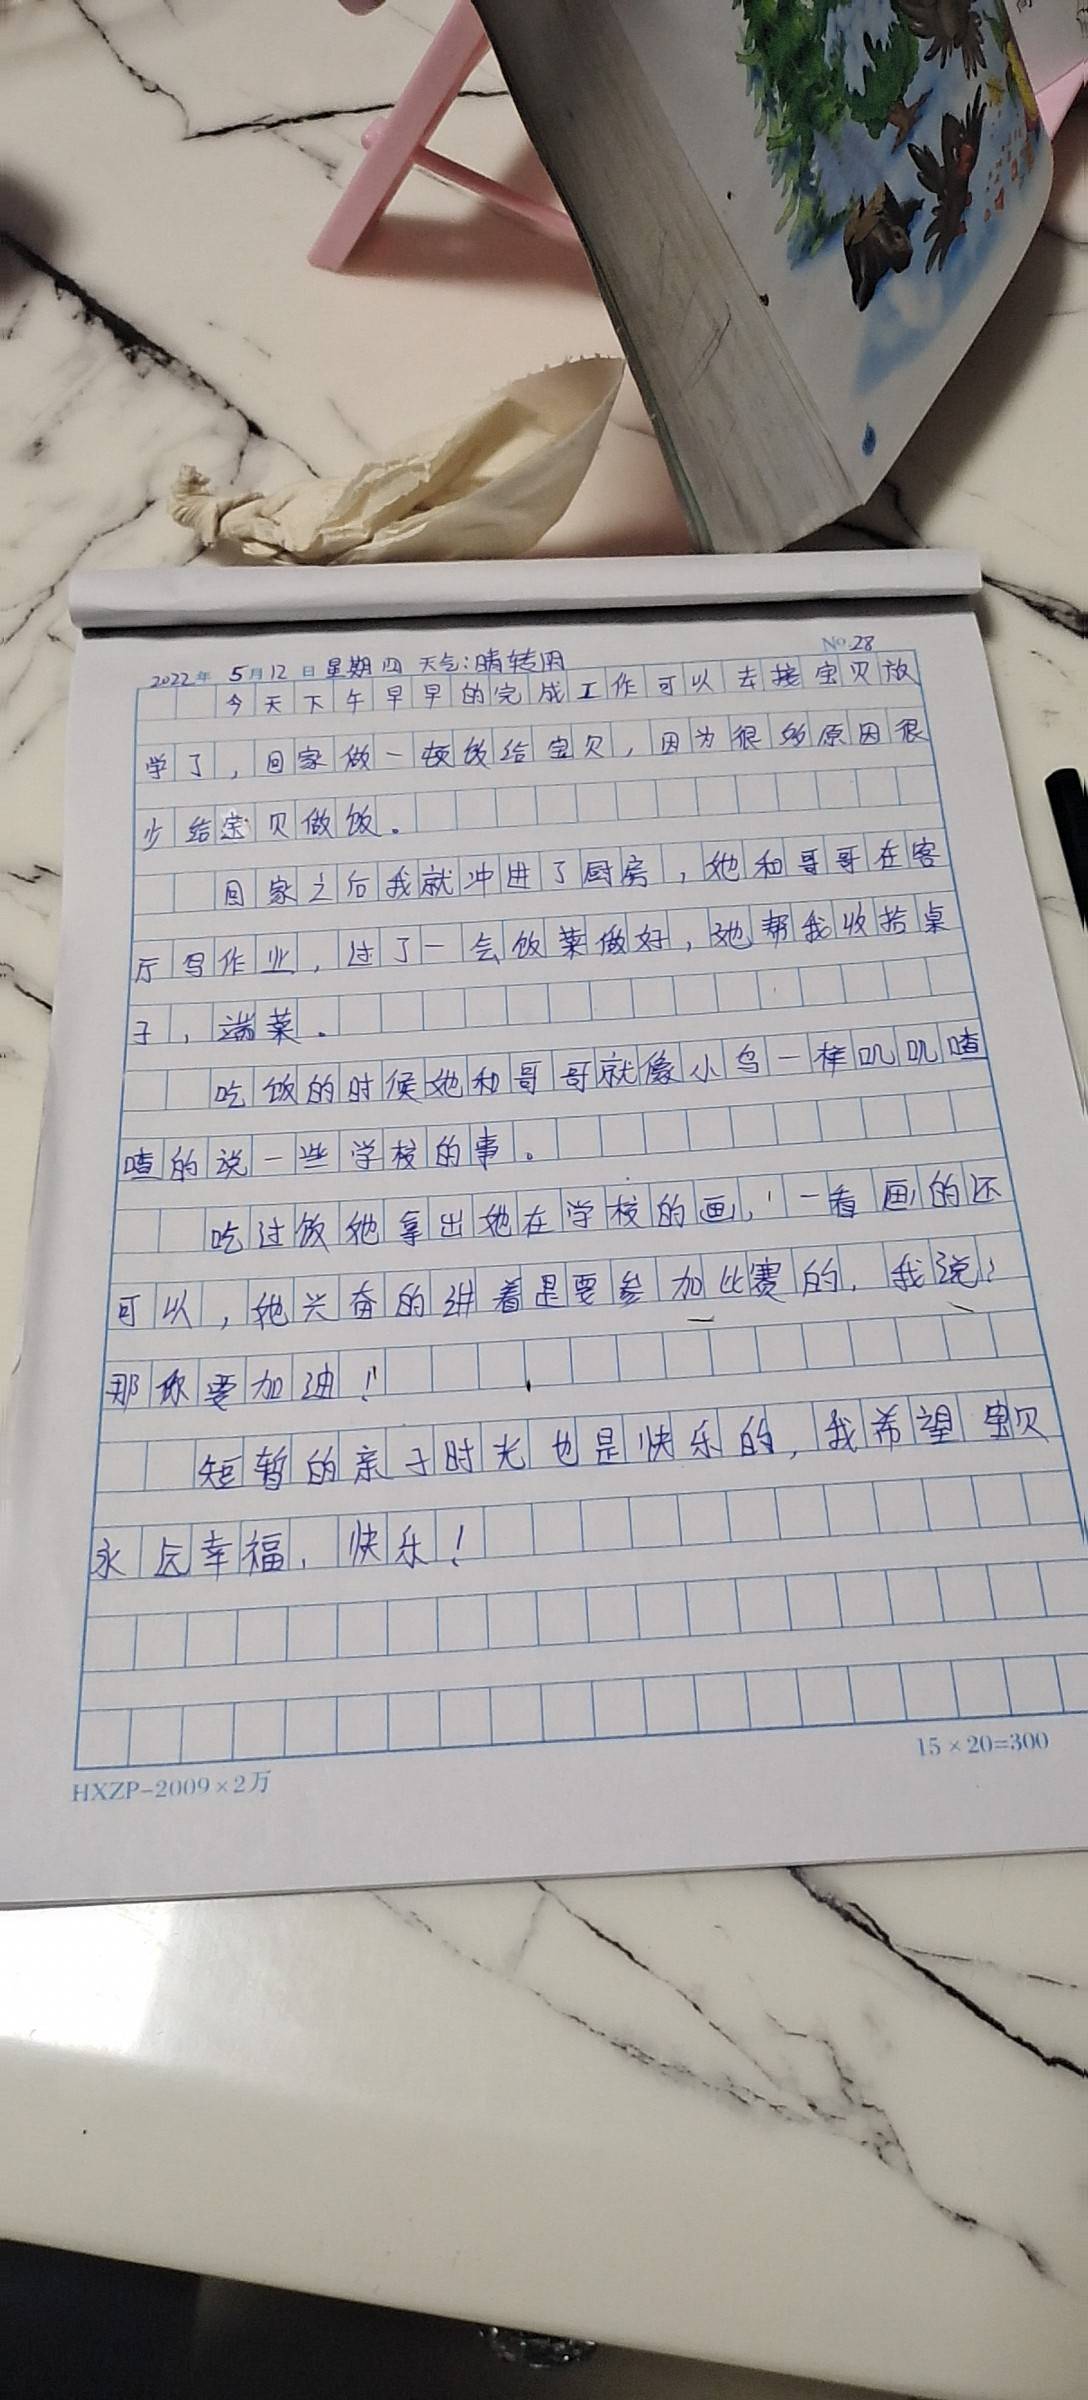 No.28
2022年 5月12日 星期四 天气:晴转阴
今天下午早早的完成工作可以去接宝贝放
学了,回家做一顿饭给宝贝,因为很多原因很
少给宝贝做饭。
回家之后我就冲进了厨房,她和哥哥在客
厅写作业,过了一会饭菜做好,她帮我收拾桌
子,端菜。
吃饭的时候她和哥哥就像小鸟一样叽叽喳
喳的说一些学校的事。
吃过饭她拿出她在学校的画,一看画的还
可以,她兴奋的讲着是要参加比赛的,我说:
那你要加油!
短暂的亲子时光也是快乐的,我希望宝贝
永远幸福、快乐!
15×20=300
HXZP-2009×2万